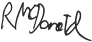 R McDonald